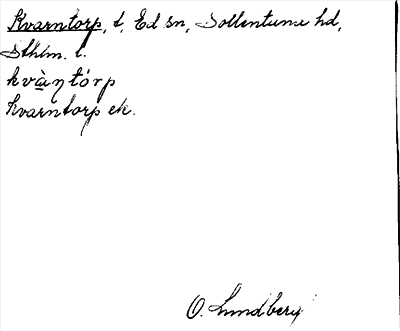 Kvarntorp, t, Ed sn, Sollentuna hd,
Sthlm. l.
kvàṉtórp
Kvarntorp ek.
O. Lundberg